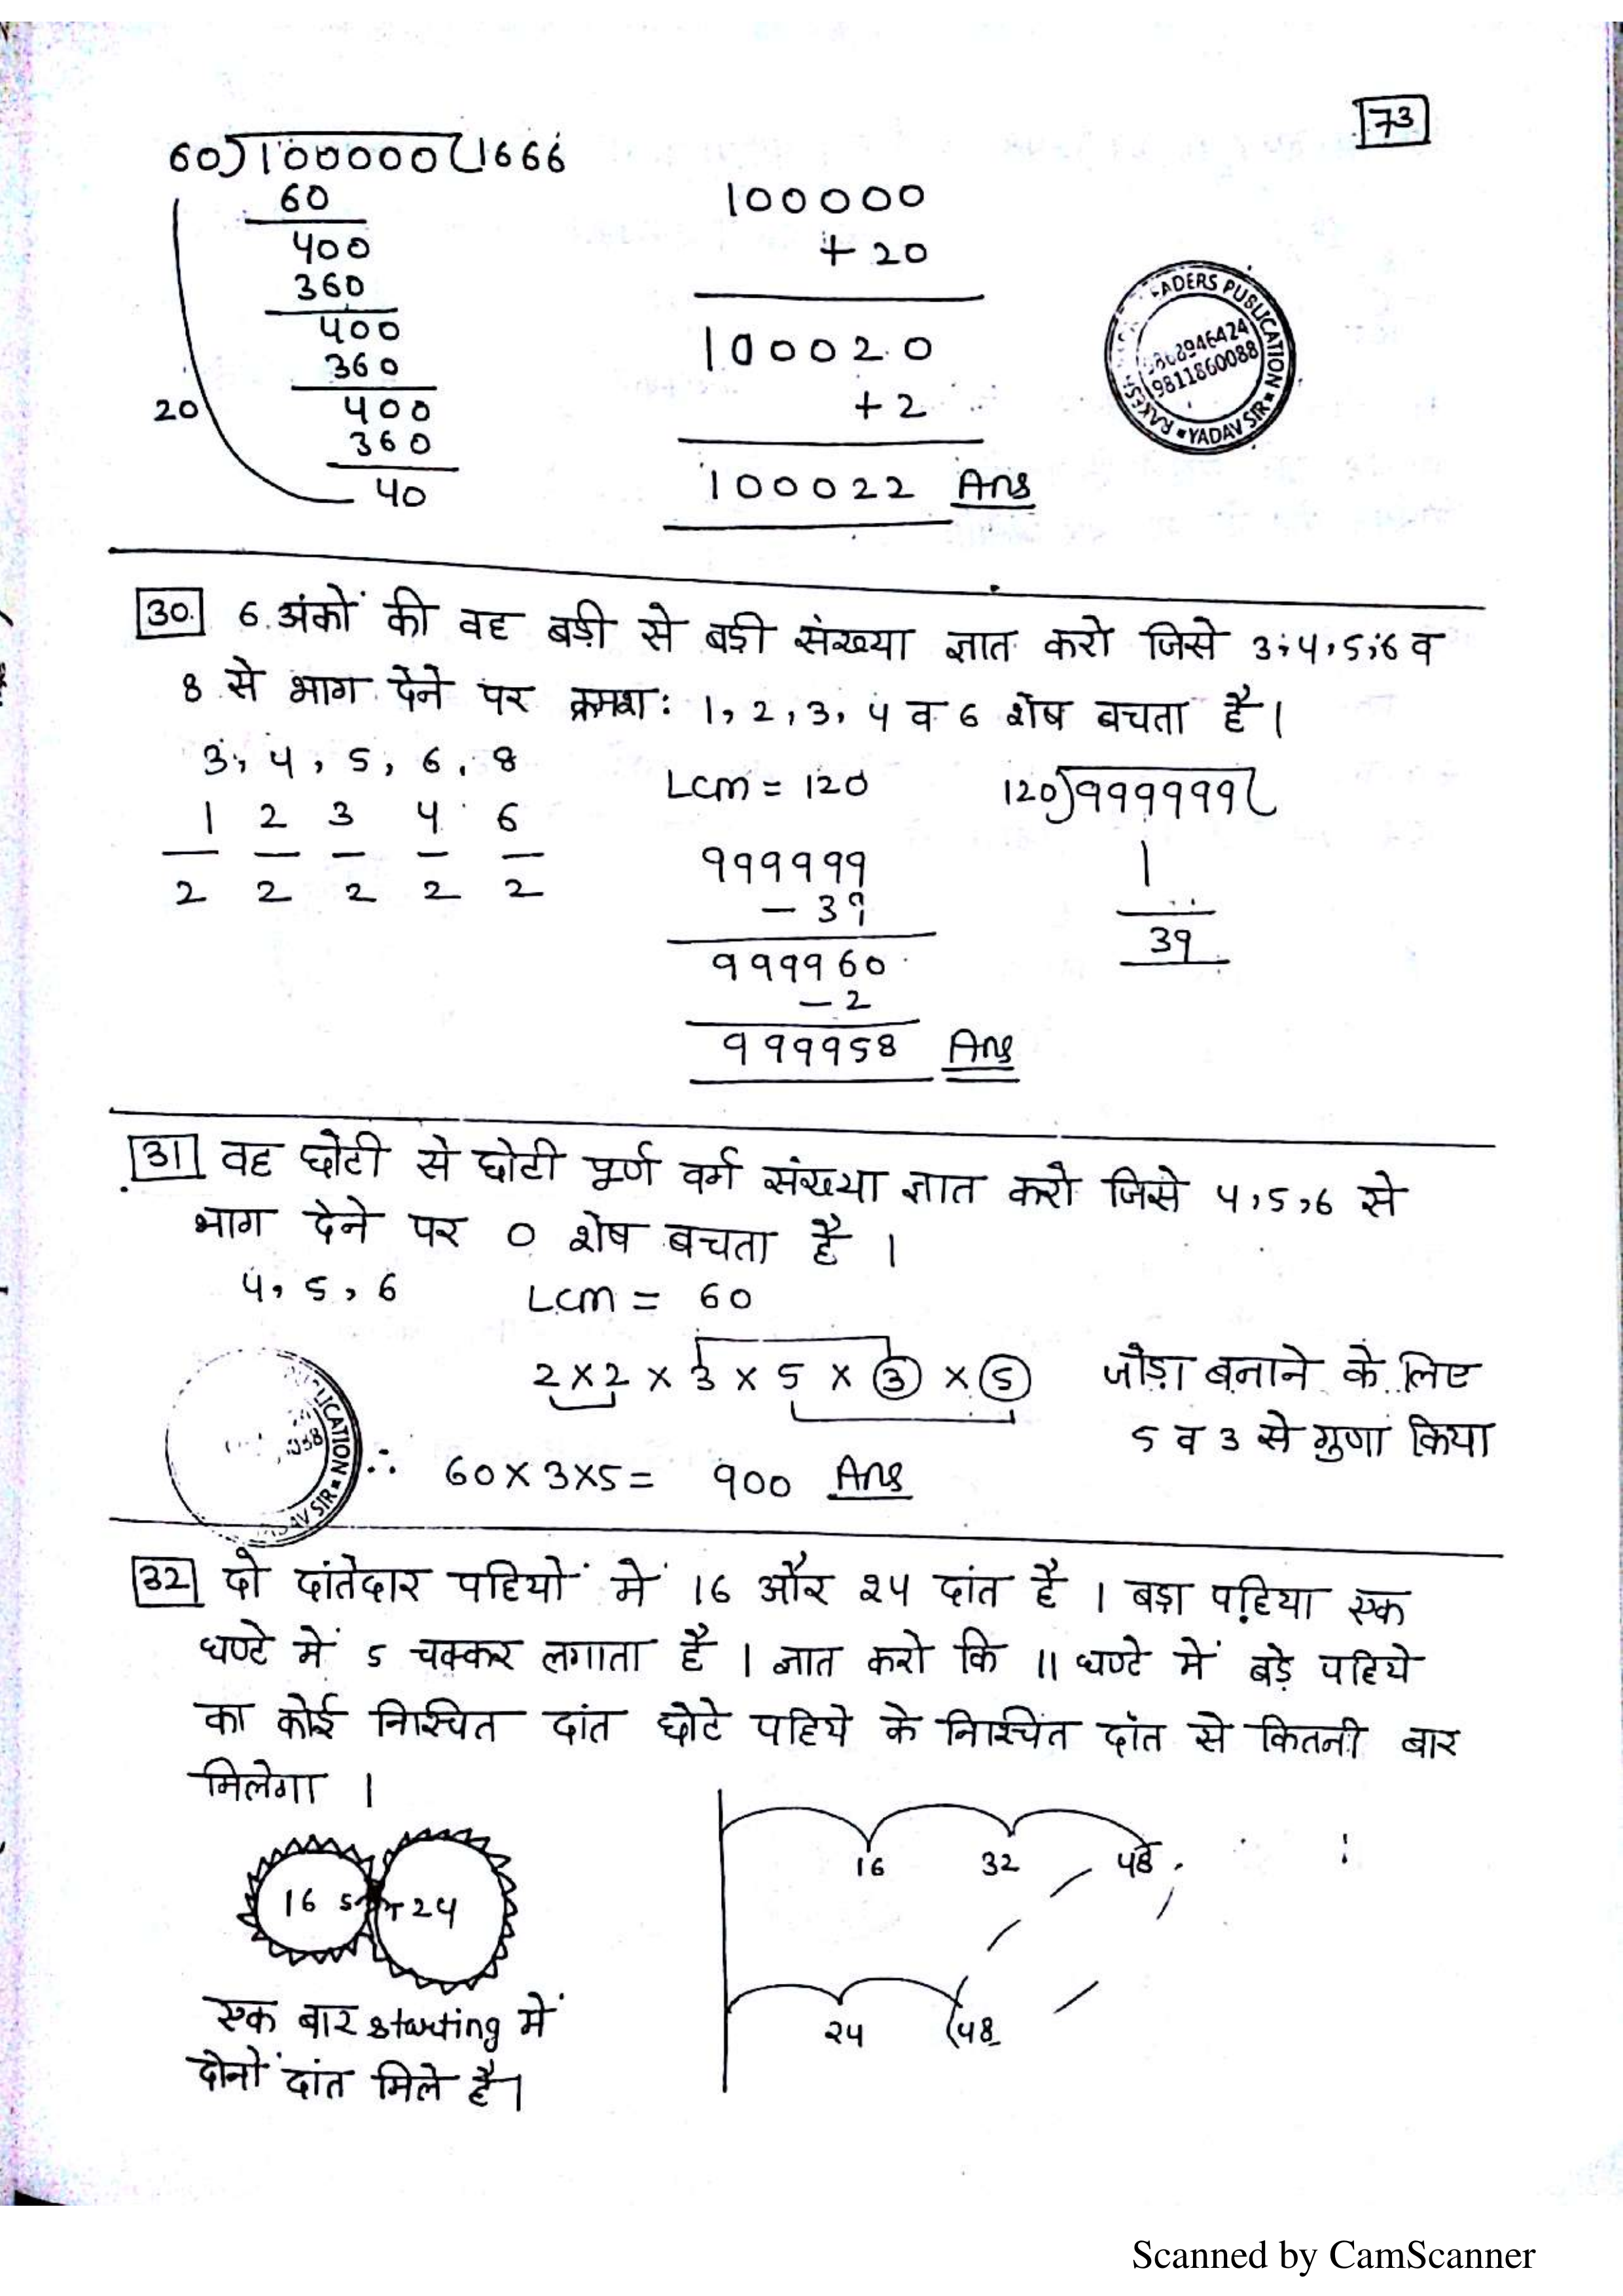 73
60)100000(1666
60
400
360
400
360
20
400
360
40
100000
+ 20
100020
+ 2
100022 Ans
ADERS PUBLICATION
9811860088
YADAV SIR
30. 6 अंकों की वह बड़ी से बड़ी संख्या ज्ञात करो जिसे 3, 4, 5, 6 व
8 से भाग देने पर क्रमश: 1, 2, 3, 4 व 6 शेष बचता है।
3, 4, 5, 6, 8
1 2 3 4 6
2 2 2 2 2
Lcm = 120
999999
- 39
999960
- 2
999958 Ans
120)999999(
1
39
31 वह छोटी से छोटी पूर्ण वर्ग संख्या ज्ञात करो जिसे 4, 5, 6 से
भाग देने पर 0 शेष बचता है ।
4, 5, 6 Lcm = 60
2 x 2 x 3 x 5 x 3 x 5 जोड़ा बनाने के लिए
5 व 3 से गुणा किया
∴ 60 x 3 x 5 = 900 Ans
32 दो दांतेदार पहियों में 16 और 24 दांत है । बड़ा पहिया एक
घण्टे में 5 चक्कर लगाता है । ज्ञात करो कि 11 घण्टे में बड़े पहिये
का कोई निश्चित दांत छोटे पहिये के निश्चित दांत से कितनी बार
मिलेगा ।
16 24
16 32 48
24 48
एक बार starting में
दोनों दांत मिले है।
Scanned by CamScanner